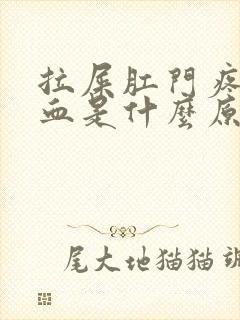 拉屎肛門疼
血是什麼原
尾大地猫猫